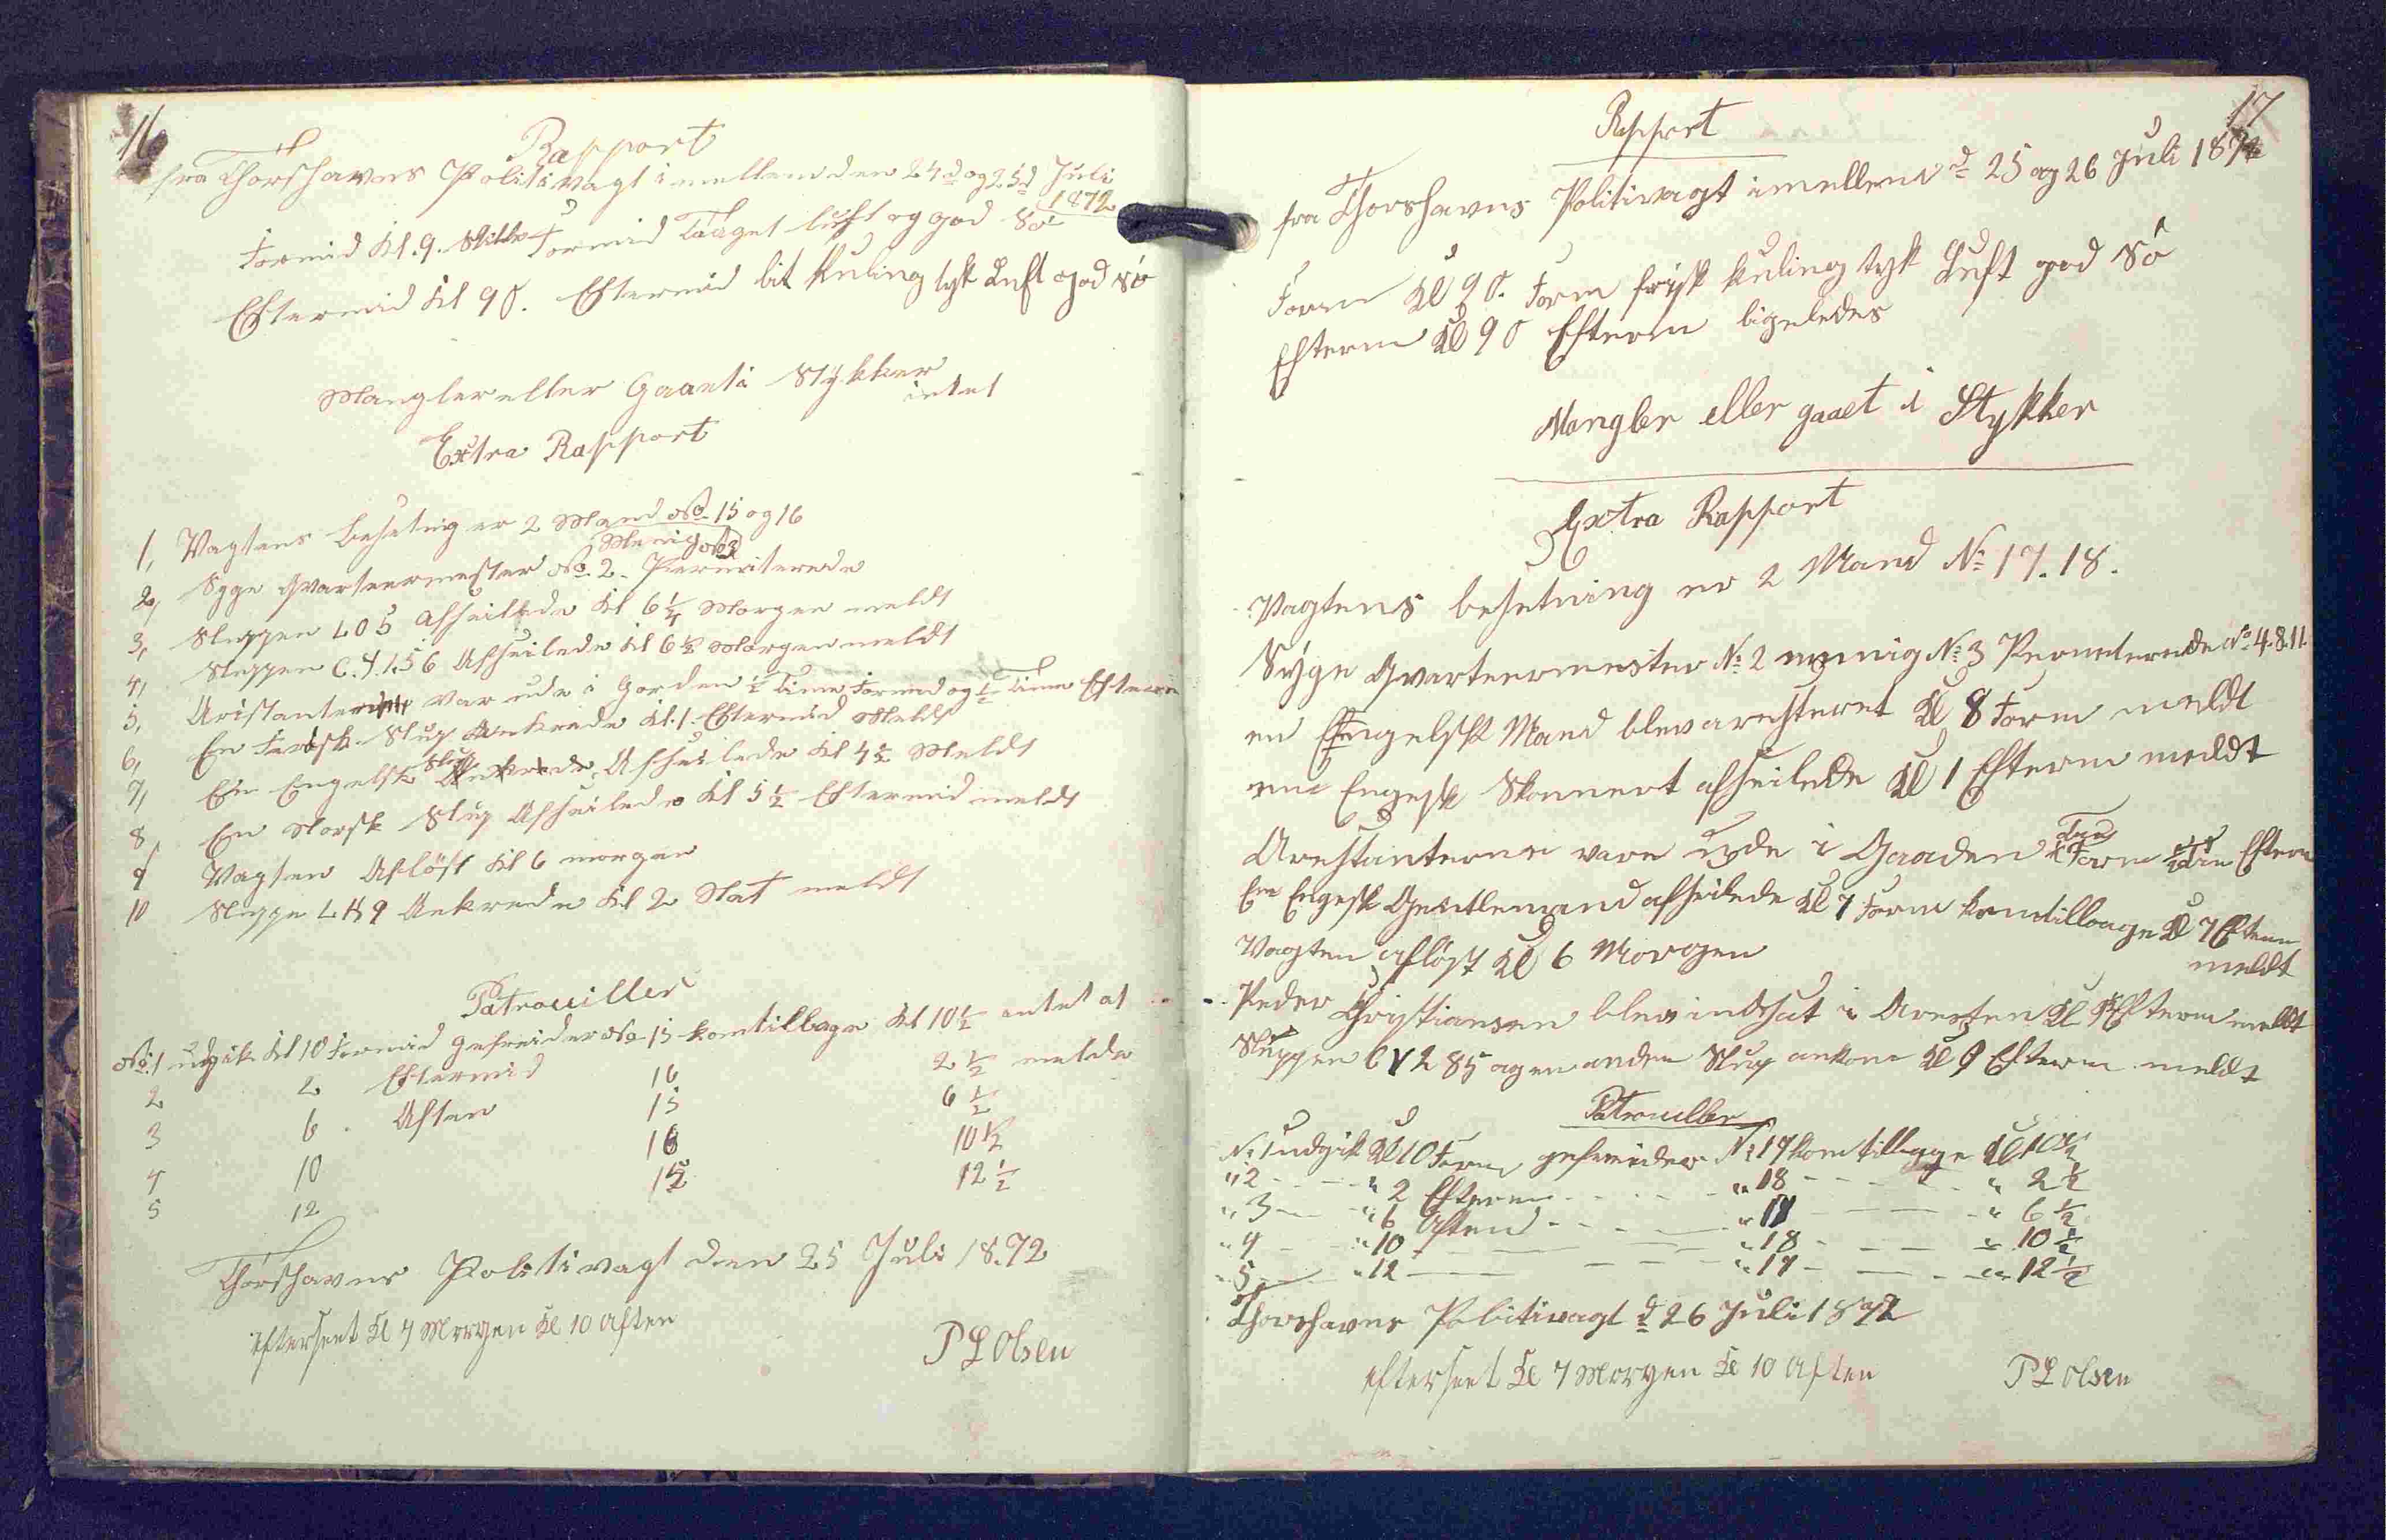 16
Rapport
fra Thorshavns Politivagt imellem den 24d og 25d Juli
1872
Formid Kl. 9. Stille Formid Taaget luft og god Sö
Eftermid Kl 9 O. Eftermid lit Kuling tyk Luft god Sö
Mangler eller Gaaet i Stykker
intet
Extra Rapport
1, Vagtens besetnig er 2 Mand No 15 og 16
Menig No 3
2, Syge Qvarteermester No 2. Permiterede
3, Sluppen L O 5 afseilede Kl 6 1/4 Morgen meldt
4, Sluppen C. Y. 1.56 Afseilede Kl 6 1/2 Morgen meldt
5, Aristanterne var ude i Gorden 1/2 Time Formid og 1/2 Time Efterm
6, En Færisk Slup Ankrede Kl. 1. Eftermid Meldt
7, En Engelsk Slup Afseilede Kl 4 1/2 Meldt
8, En Norsk Slup Afseilede Kl 5 1/2 Eftermid meldt
9 Vagten Aflöst Kl 6 morgen
10 Sluppe L H 9 Ankrede Kl 2 Nat meldt
Patrouiller
No. 1 udgik Kl 10 Formid gefreider No 15 kom tilbage Kl 10 1/2 intet at
2 2 Eftermid 16 2 1/2 melde
3 6 Aften 15 6 1/2
4 10 16 10 1/2
5 12 15 12 1/2
Thorshavns Politivagt den 25 Juli 1872
Efterseet Kl 7 Morgen Kl 10 Aften
P L Olsen
17
Rapport
fra Thorshavns Politivagt imellem d 25 og 26 Juli 1872
Form Kl 9 O. Form frisk Kuling tyk Luft god Sö
Efterm Kl 9 O Efterm ligeledes
Mangler eller gaaet i Stykker
Extra Rapport
Vagtens besetning er 2 Mand No 17. 18.
Syge Qvarteermester No 2 menig No 3 Permiterede No 4. 8. 11.
en Engelsk Mand blev aresteret Kl 8 Form meldt
en Engelsk Skonnert afseilede Kl 1 Efterm meldt
Arestanterne vare ude i Gaarden Form Efterm
En Engelsk Gentlemand afseilede Kl 7 Form kom tilbage Kl 7 Efterm
meldt
Vagten aflöst Kl 6 Morgen
Peder Christiansen blev indsat i Aresten Kl Efterm meldt
Sluppen C Y 2 85 og en anden Slup ankom Kl 9 Efterm meldt
Patrouller
No 1 udgik Kl 10 Form gefreider No 17 kom tilbage Kl 10 1/2
" 2 " 2 Efterm " 18 " 2 1/2
" 3 " 6 Aften " 17 " 6 1/2
" 4 " 10 " 18 " 10 1/2
" 5 " 12 " 17 " 12 1/2
Thorshavns Politivagt d 26 Juli 1872
Efterseet Kl 7 Morgen Kl 10 Aften
P L Olsen